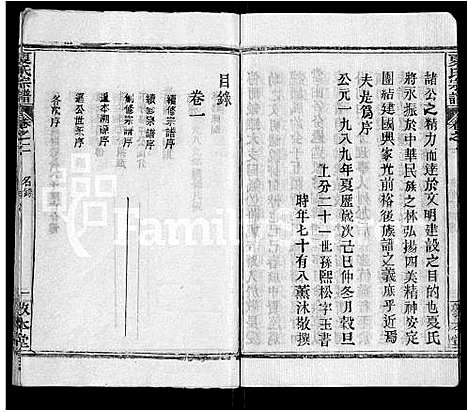 諸公之精力而達於文明建設之目的也夏氏
將永振於中華民族之林弘揚四美精神安定
團結建國興家光前裕後族譜之義庶乎近焉
夫是為序
公元一九八九年夏歷歲次己巳仲冬月穀旦
上分二十一世孫熙松字玉書
時年七十有八薰沐敬撰
目錄
卷一
續修宗譜序
創修宗譜序
溫本湖源序
溫公世系序
各次序
夏氏宗譜
卷之一
名錄
一
敦本堂
FamilyS